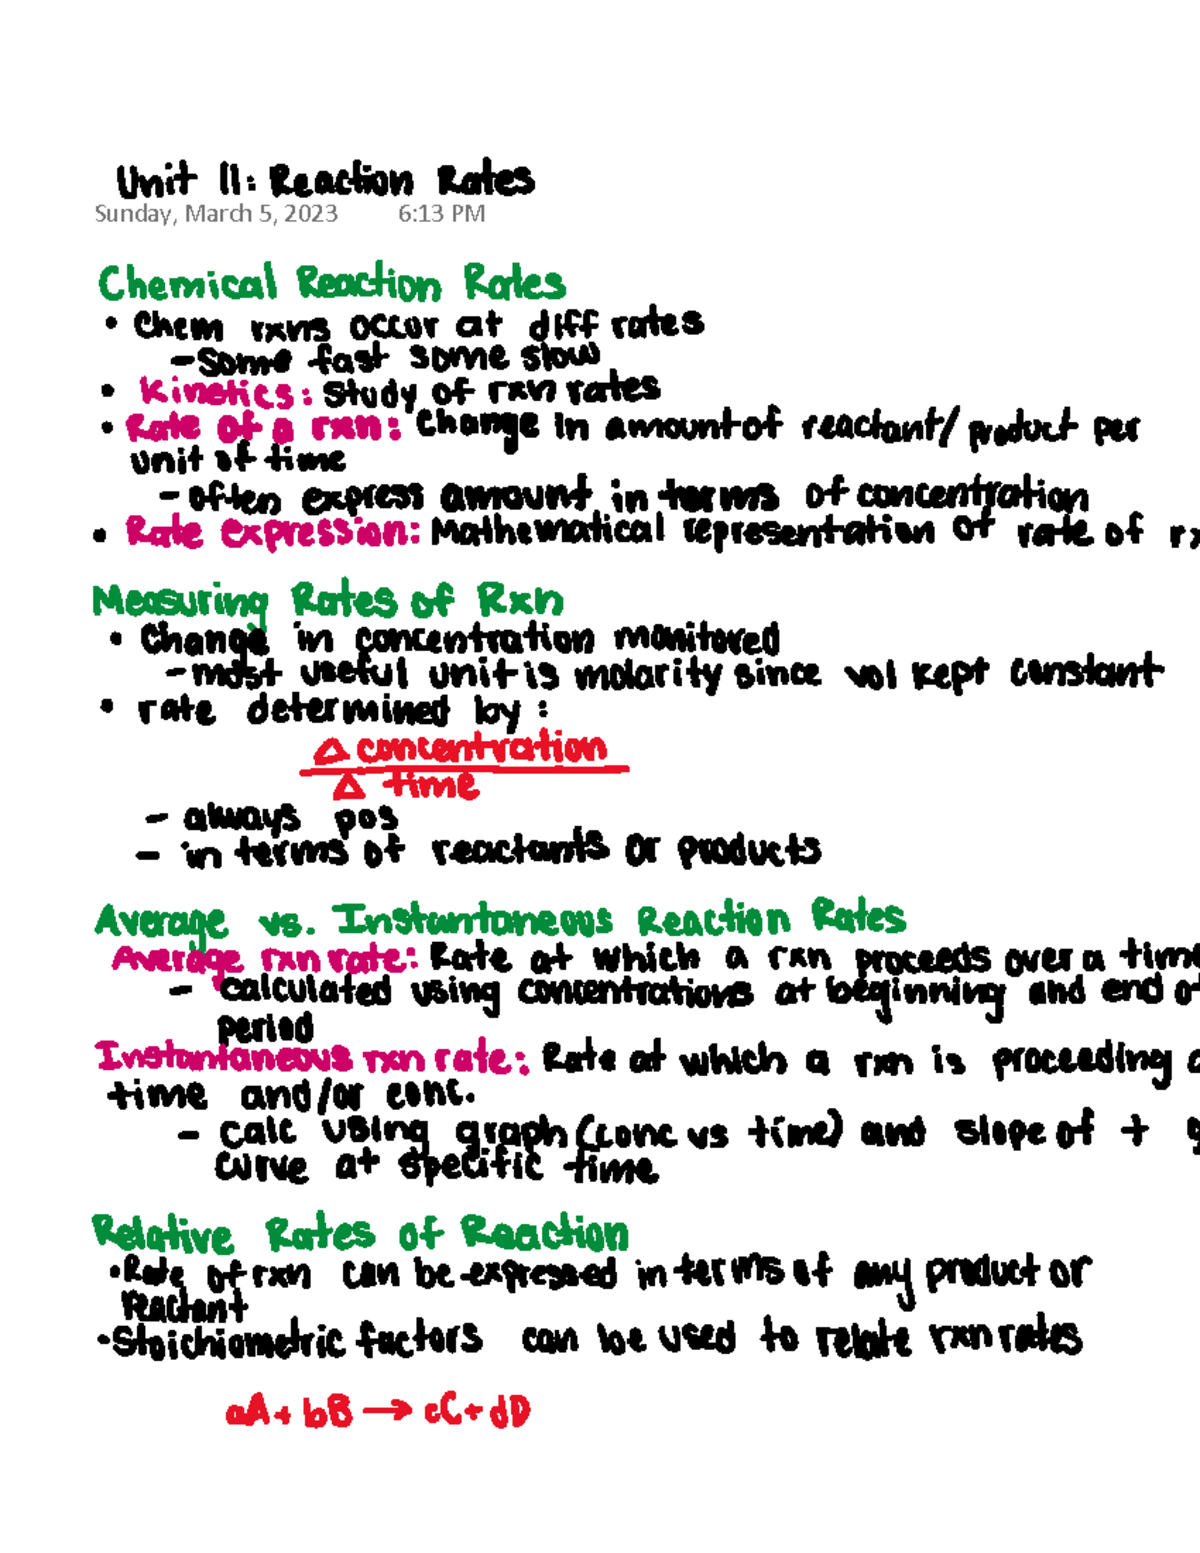 Unit 11: Reaction Rates
Sunday, March 5, 2023 6:13 PM
Chemical Reaction Rates
• Chem rxns occur at diff rates
- Some fast some slow
• Kinetics: Study of rxn rates
• Rate of a rxn: Change in amount of reactant/product per
unit of time
- often express amount in terms of concentration
• Rate expression: Mathematical representation of rate of
Measuring Rates of Rxn
• Change in concentration monitored
- most useful unit is molarity since vol kept constant
• rate determined by:
Δ concentration
Δ time
- always pos
- in terms of reactants or products
Average vs. Instantaneous Reaction Rates
Average rxn rate: Rate at which a rxn proceeds over a time
- calculated using concentrations at beginning and end
period
Instantaneous rxn rate: Rate at which a rxn is proceeding
time and/or conc.
- calc using graph (conc vs time) and slope of t
curve at specific time
Relative Rates of Reaction
• Rate of rxn can be expressed in terms of any product or
reactant
• Stoichiometric factors can be used to relate rxn rates
aA + bB → cC + dD